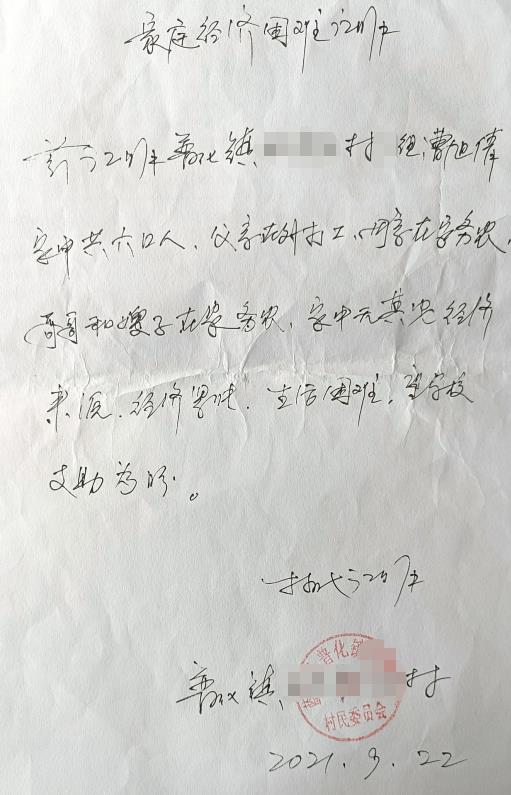 家庭经济困难证明
兹证明普化镇 村 组 曹
家中共六口人、父亲在外打工、母亲在家务农、
哥哥和嫂子在家务农、家中无其它经济
来源、经济困难、生活困难、望学校
支助为盼。
特此证明
普化镇 村
普化镇
村民委员会
2021.9.22